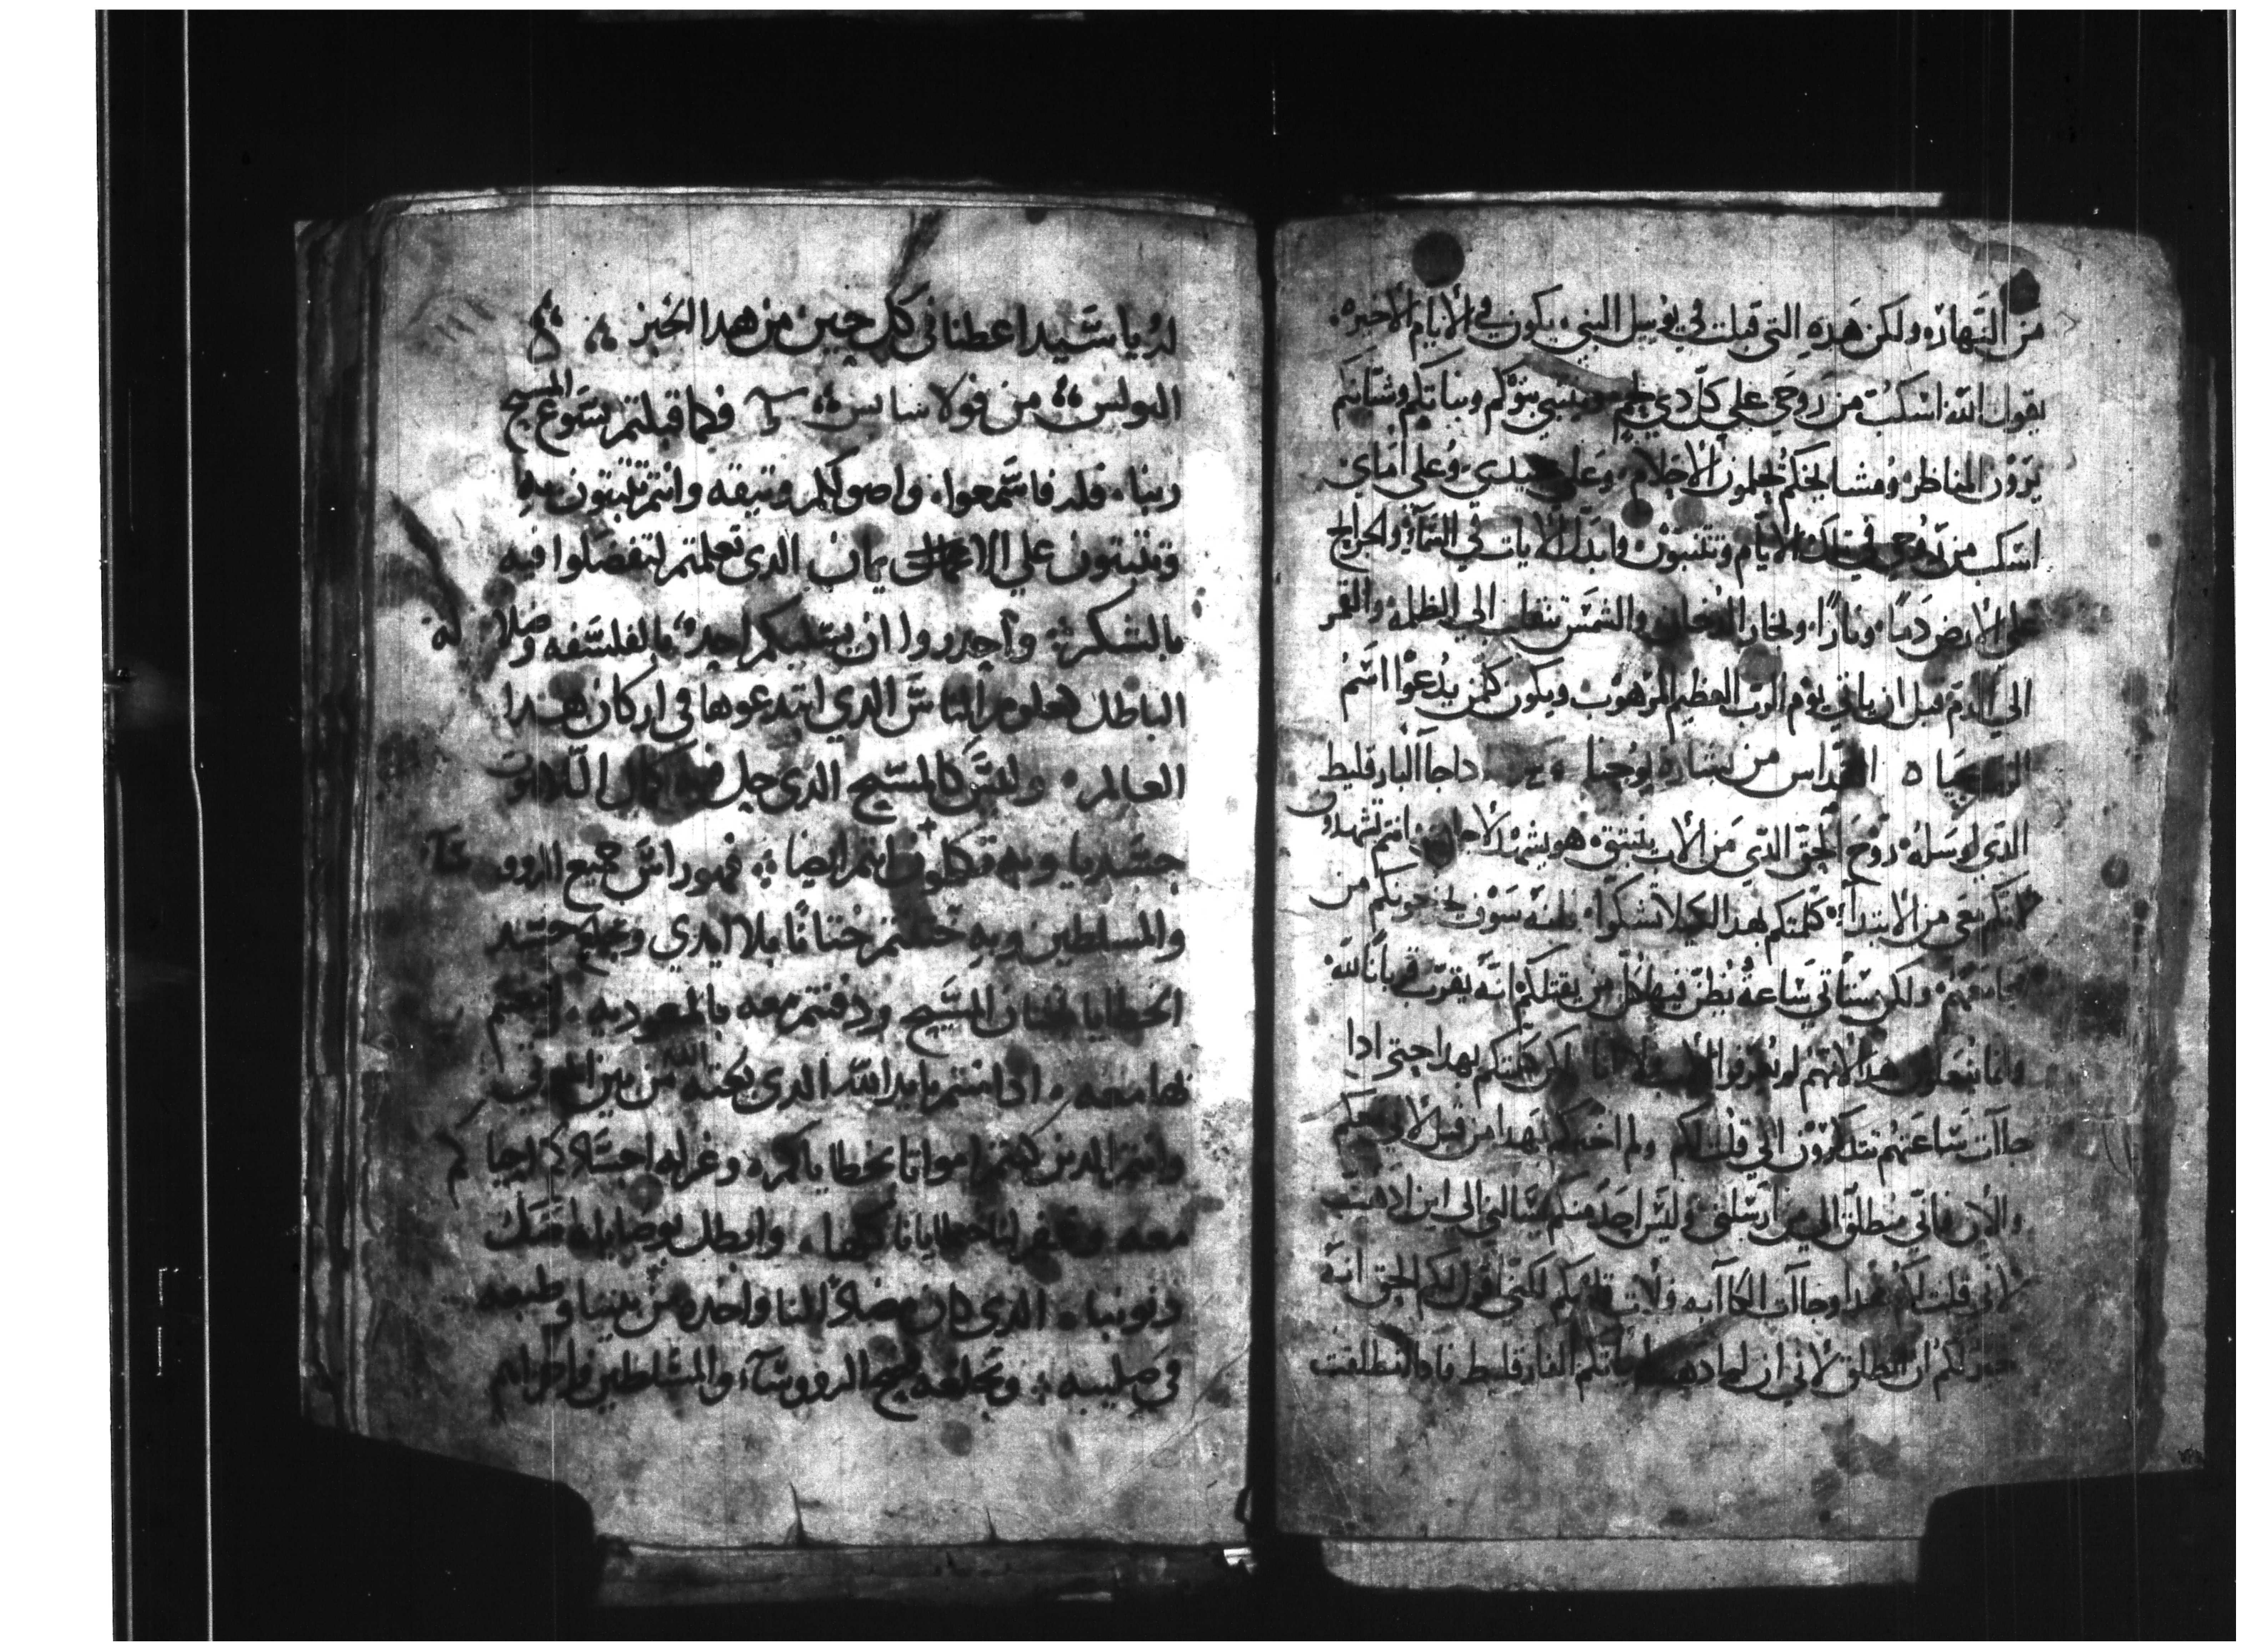 من النهار ولكن هذه التي قيلت في يوييل النبي يكون في الأيام الأخيره
يقول الله اسكب من روحي على كل ذي لحم بنوكم وبناتكم وشبانكم
يرون المناظر ومشايخكم يحلمون الأحلام وعلى عبيدي وعلى اماي
اسكب من روحي في تلك الأيام ويتنبون وابدل الآيات في السمآء والجرايح
على الأرض دمًا ونارًا وبخار الدخان والشمس تنقلب الى الظلمه والقمر
الى الدم قبل ان ياتي يوم الرب العظيم المرهوب ويكون كلمن يدعوا اسم
القداس من بشارة يوحنا اداجآ البارقليط
الذي ارسله روح الحق الذي من الأب ينبثق هو يشهد لأجلي انتم تشهدون
لأنكم معي من الابتدآء كلمتكم بهدا لكيلا تشكوا فانه سوف يخرجونكم من
ولكن ستأتي ساعة يظن فيها كل من يقتلكم انه يقرب قربانًا لله
وانما يفعلون هدا لأنهم لم يعرفوا الأب ولا انا لكن كلمتكم بهدا حتى ادا
جآت ساعتهم تتدكرون اني قلت لكم ولم اخبركم بهدا من قبل لأني معكم
والآن فاني منطلق الى من ارسلني وليس احد منكم يسالني الى اين ادهب
لأني قلت لكم هدا وجآت الكآبه فلأت قلوبكم لكني اقول لكم الحق انه
خير لكم ان انطلق لأني ان لم ادهب لم ياتكم الفارقليط فادا انطلقت
له يا سيد اعطنا في كل حين من هدا الخبز
البولس من قولاسايس فكما قبلتم يسوع المسيح
ربنا فلد فاسمعوا واصولكم وثيقه وانتم تثبتون به
وتثبتون على الايمان الدى تعلمتم لتفضلوا فيه
بالشكر واحدروا ان يسلبكم احد بالفلسفه وضلاله
الباطل كعلوم الناس الدي ابتدعوها في اركان هدا
العالم وليس كالمسيح الدى حل فيه كمال اللاهوت
جسديا وبه تكملون انتم ايضا فهو راس جميع الروسآ
والمسلطين وبه ختنتم ختانًا بلا ايدي جسد
الخطايا بختان المسيح ودفنتم معه بالمعموديه
بها معه ادامنتم بايد الله الدى بعثه من بين الموتي
وانتم الدين كنتم امواتا بخطاياكم وغرله اجسادكم احياكم
معه وغفر لنا خطايانا كلها وابطل بوصاياه صك
دنوبنا الدى كان مضادًا لنا واخده من بيننا وطبعه
في صليبه وبخلعه الروسآء والمسلطين